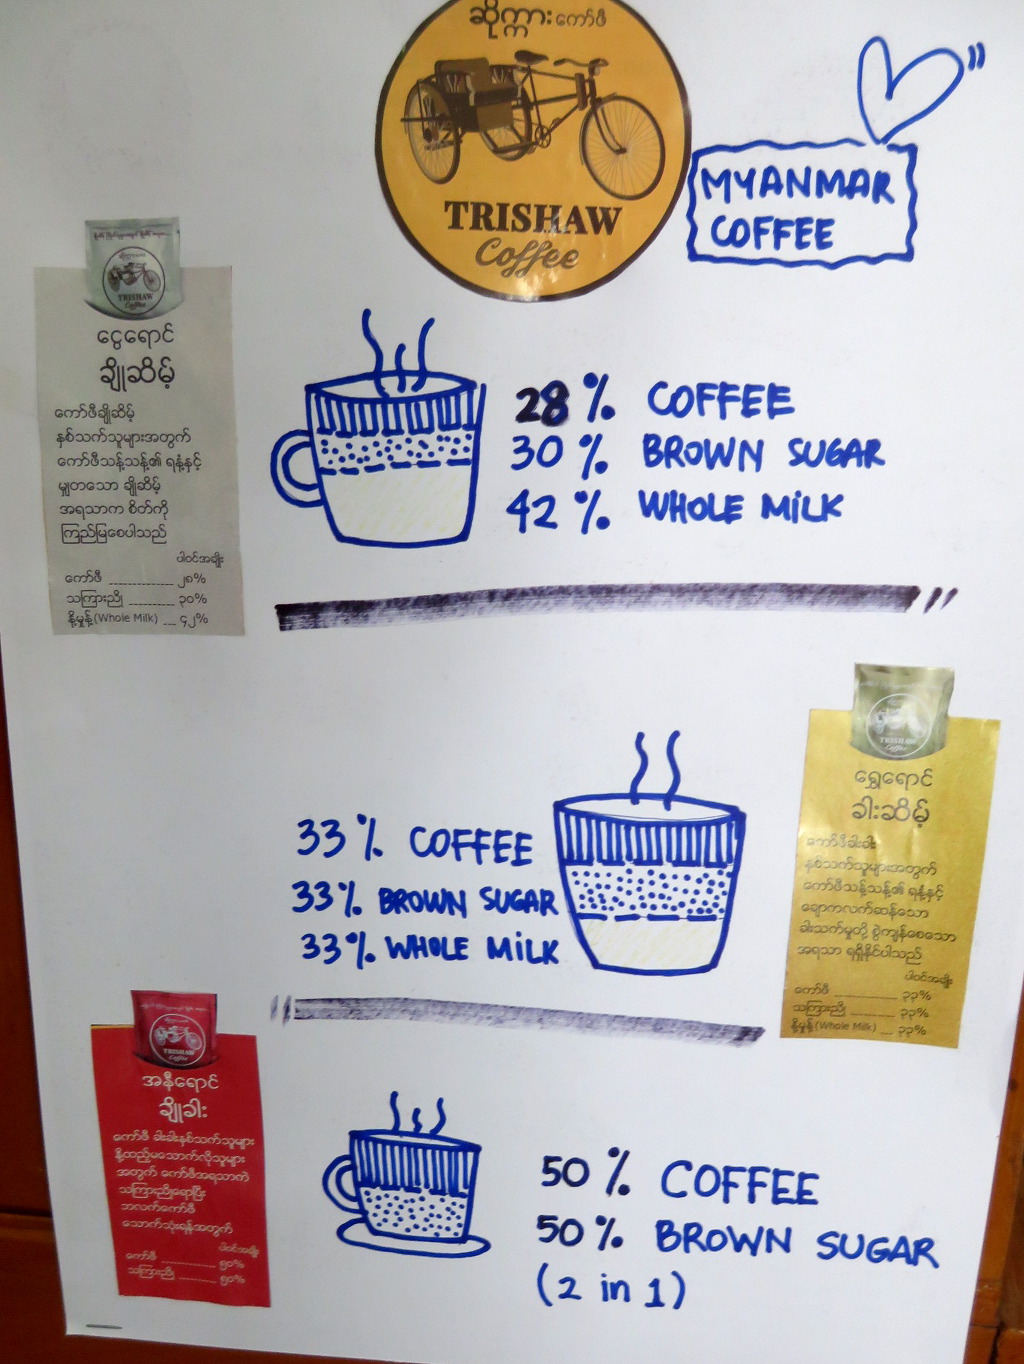 ဆိုက္ကားကော်ဖီ
TRISHAW
Coffee
MYANMAR
COFFEE
TRISHAW
Coffee
ငွေရောင်
ချိုဆိမ့်
ကော်ဖီချိုဆိမ့်
နှစ်သက်သူများအတွက်
ကော်ဖီသန့်သန့်၏ ရနံ့နှင့်
မျှတသော ချိုဆိမ့်
အရသာက စိတ်ကို
ကြည်မြစေပါသည်
ပါဝင်အချိုး
ကော်ဖီ ၂၈%
သကြားညို ၃၀%
နို့မှုန့် (Whole Milk) ၄၂%
28% COFFEE
30% BROWN SUGAR
42% WHOLE MiLK
TRISHAW
Coffee
ရွှေရောင်
ခါးဆိမ့်
ကော်ဖီခါးခါး
နှစ်သက်သူများအတွက်
ကော်ဖီသန့်သန့်၏ ရနံ့နှင့်
ချောကလက်ဆန်သော
ခါးသက်မှုတို့ စွဲကျန်စေသော
အရသာ ရရှိနိုင်ပါသည်
ပါဝင်အချိုး
ကော်ဖီ ၃၃%
သကြားညို ၃၃%
နို့မှုန့် (Whole Milk) ၃၃%
33% COFFEE
33% BROWN SUGAR
33% WHOLE MiLK
TRISHAW
Coffee
အနီရောင်
ချိုခါး
ကော်ဖီ ခါးခါးနှစ်သက်သူများ
နို့ထည့်မသောက်လိုသူများ
အတွက် ကော်ဖီအရသာကဲ
သကြားညိုရောပြီး
ဘလက်ကော်ဖီ
သောက်သုံးရန်အတွက်
ပါဝင်အချိုး
ကော်ဖီ ၅၀%
သကြားညို ၅၀%
50% COFFEE
50% BROWN SUGAR
(2 in 1)